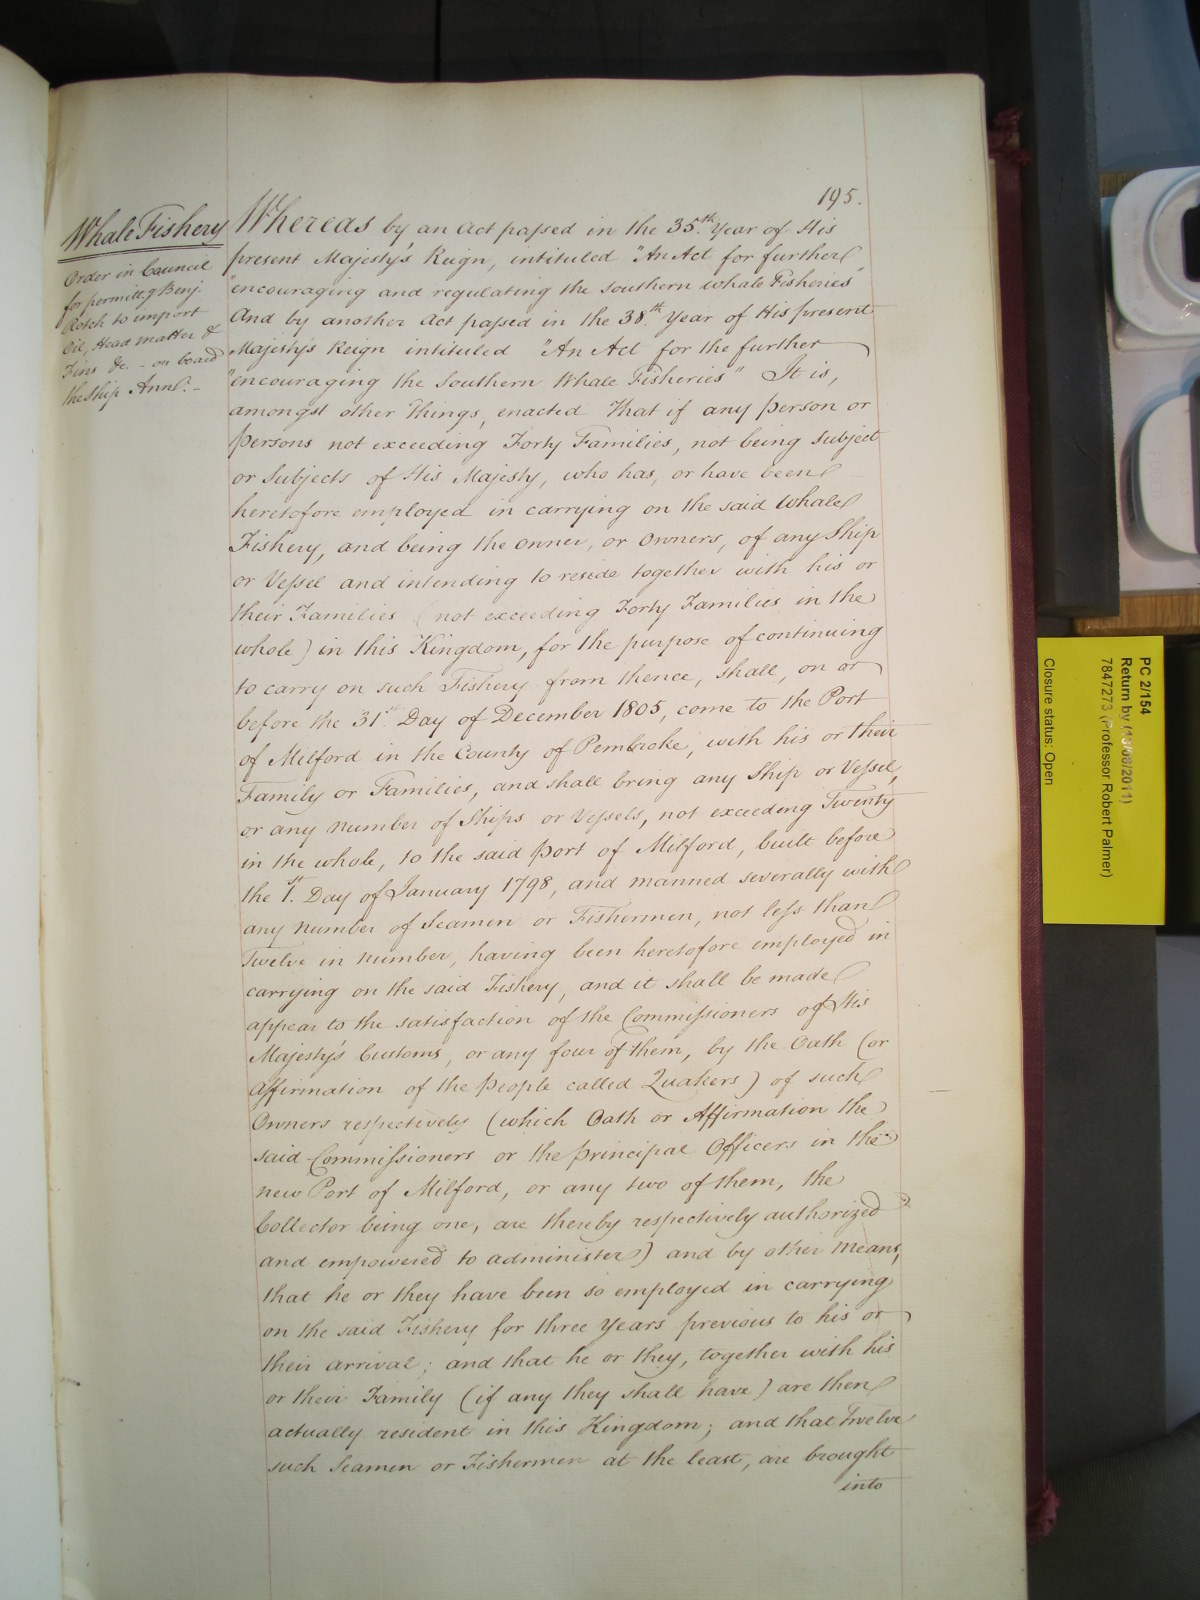 195.
Whale Fishery
Order in Council
for permittg Benj.
Rotch to import
Oil, Head matter &
Fins &c. - on board
the Ship Ann. -
Whereas by an Act passed in the 35th Year of His
present Majesty's Reign, intituled "An Act for further
"encouraging and regulating the Southern whale Fisheries"
And by another Act passed in the 38th Year of His present
Majesty's Reign intituled "An Act for the further
"encouraging the Southern Whale Fisheries" It is,
amongst other Things, enacted That if any Person or
Persons not exceeding Forty Families, not being Subject
or Subjects of His Majesty, who has, or have been
heretofore employed in carrying on the said Whale
Fishery, and being the Owner, or Owners, of any Ship
or Vessel and intending to reside together with his or
their Families (not exceeding Forty Families in the
whole) in this Kingdom, for the purpose of continuing
to carry on such Fishery from thence, shall, on or
before the 31st Day of December 1805, come to the Port
of Milford in the County of Pembroke, with his or their
Family or Families, and shall bring any Ship or Vessel,
or any number of Ships or Vessels, not exceeding Twenty
in the whole, to the said Port of Milford, built before
the 1st Day of January 1798, and manned severally with
any number of Seamen or Fishermen, not less than
Twelve in number, having been heretofore employed in
carrying on the said Fishery, and it shall be made
appear to the satisfaction of the Commissioners of His
Majesty's Customs, or any four of them, by the Oath (or
Affirmation of the People called Quakers) of such
Owners respectively (which Oath or Affirmation the
said Commissioners or the principal Officers in the
new Port of Milford, or any two of them, the
Collector being one, are thereby respectively authorized
and empowered to administer) and by other Means,
that he or they have been so employed in carrying
on the said Fishery for three Years previous to his or
their arrival; and that he or they, together with his
or their Family (if any they shall have) are then
actually resident in this Kingdom; and that Twelve
such Seamen or Fishermen at the least, are brought
into
PC 2/154
Return by (13/08/2011)
7847273 (Professor Robert Palmer)
Closure status: Open